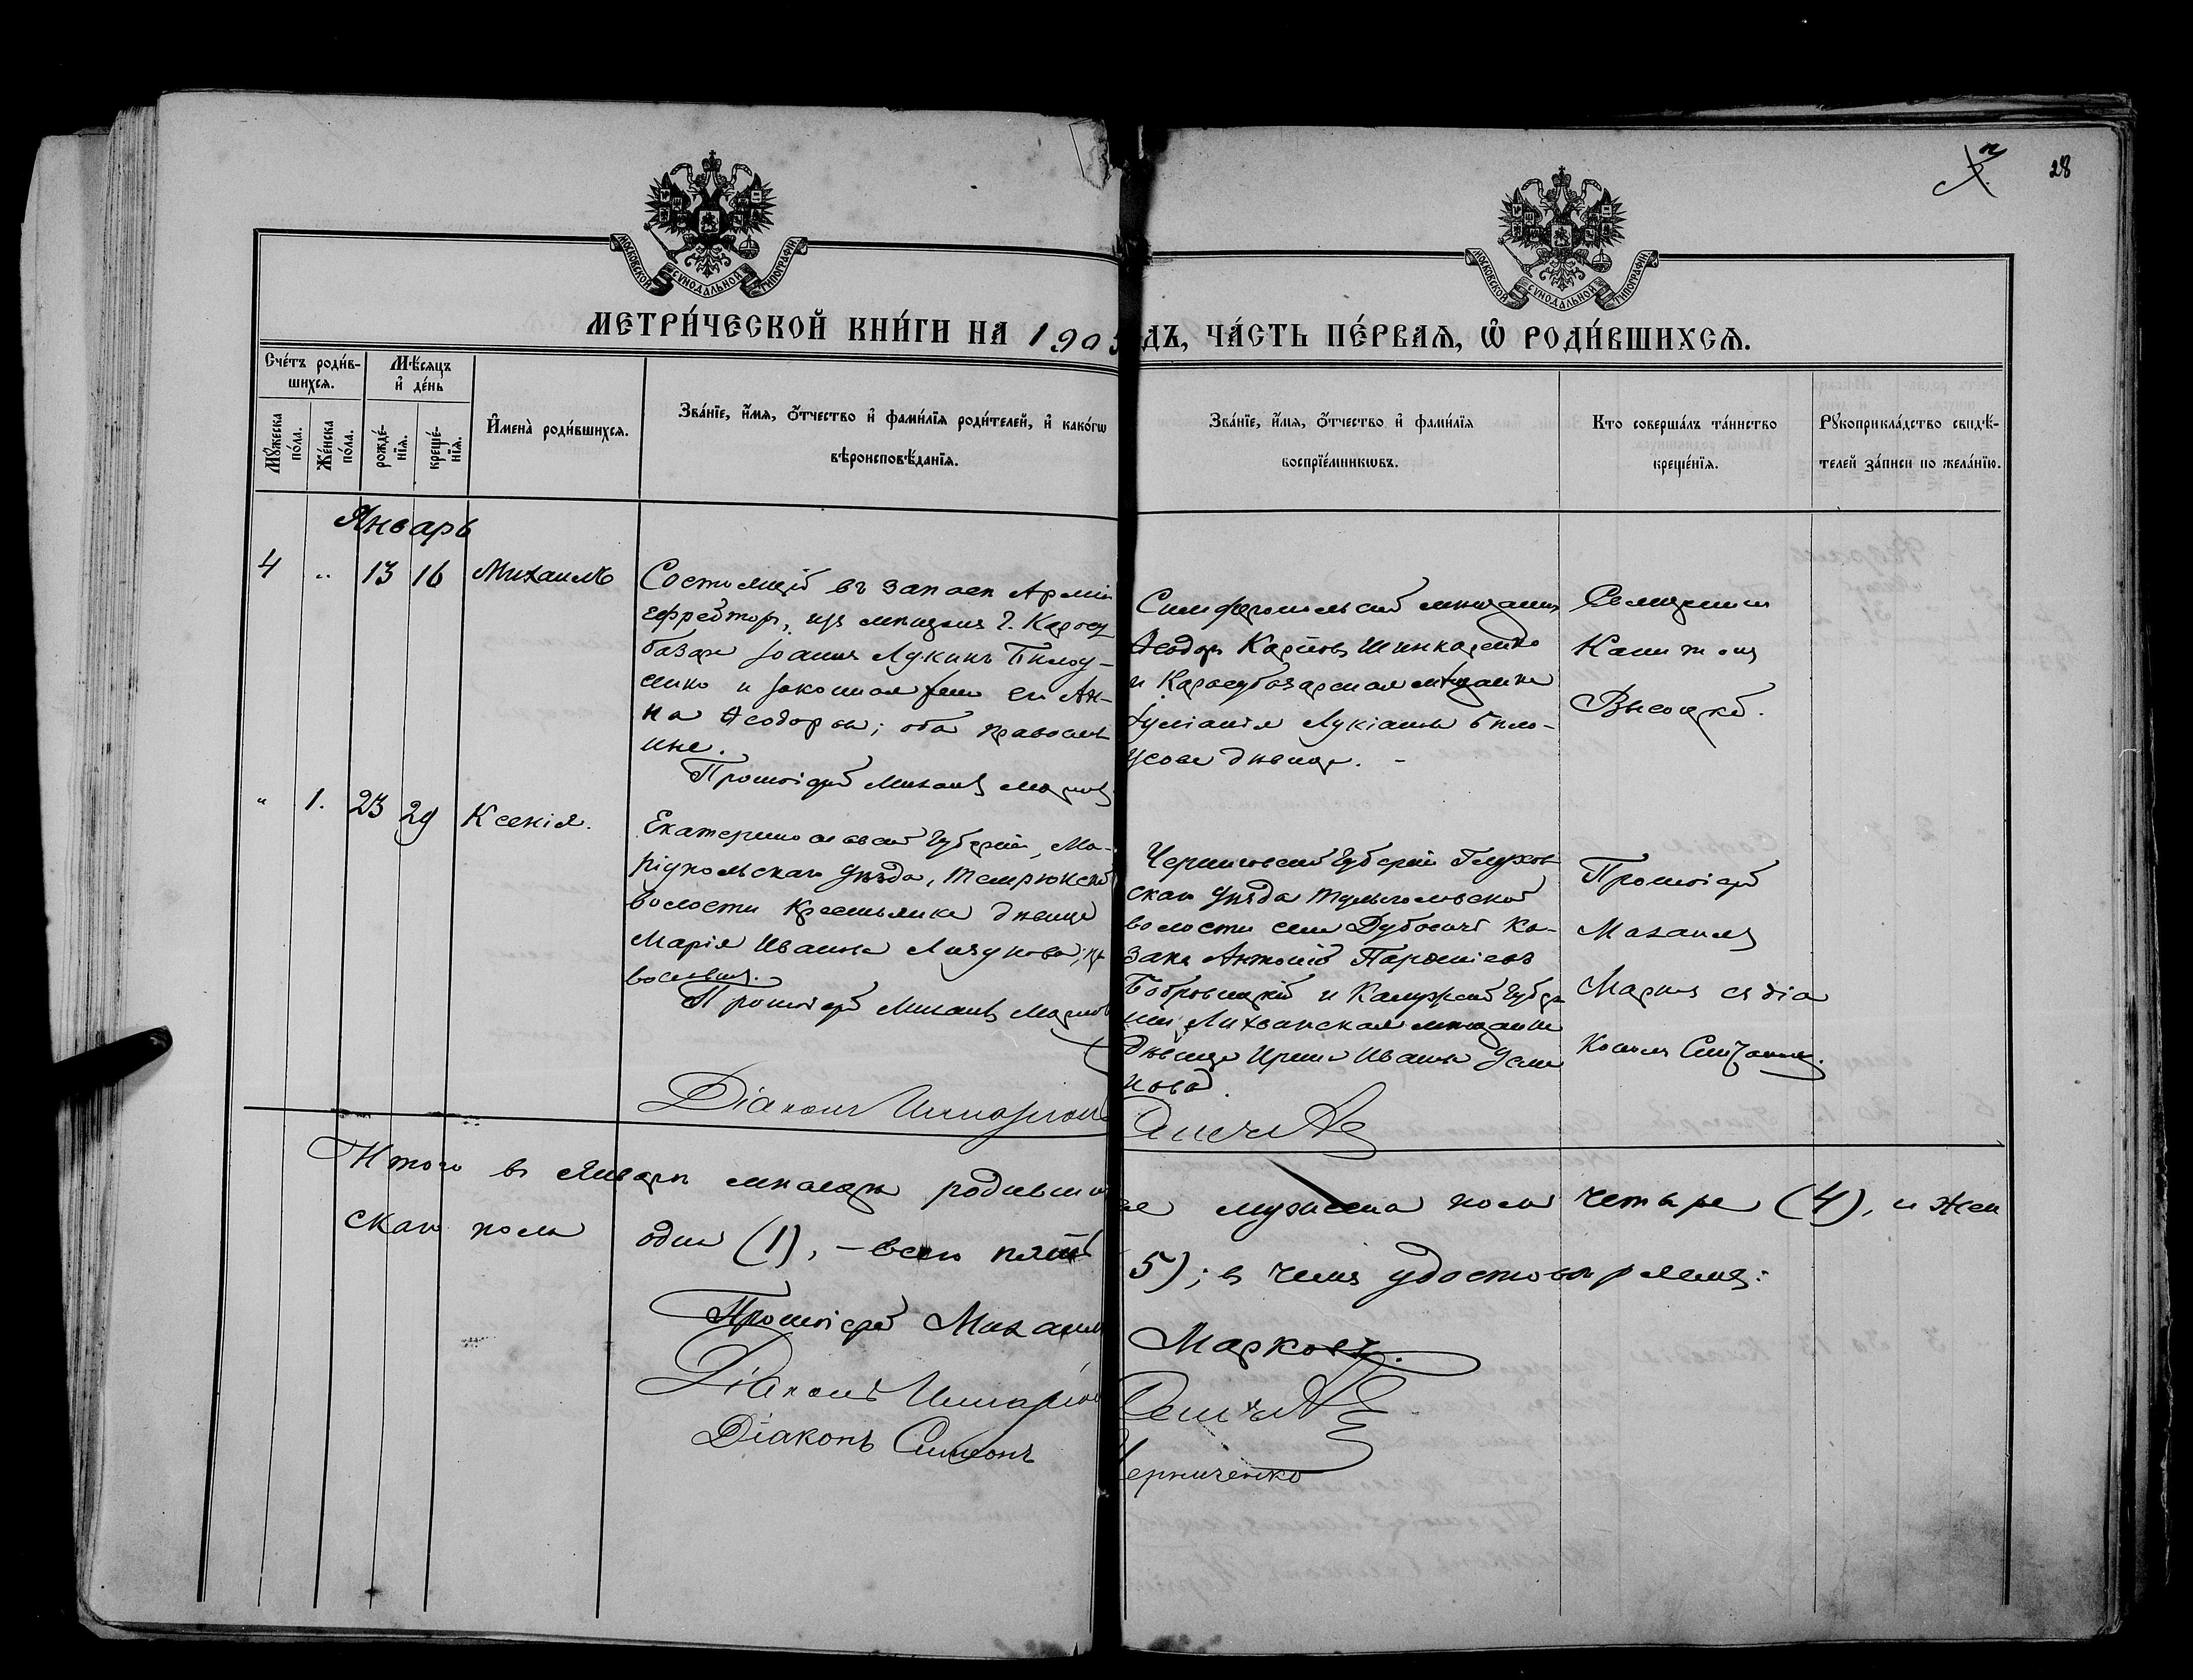 28
МОСКОВСКОЙ СѴНОДАЛЬНОЙ ТИПОГРАФІИ
МОСКОВСКОЙ СѴНОДАЛЬНОЙ ТИПОГРАФІИ
МЕТРИ́ЧЕСКОЙ КНИ́ГИ НА 1905
ДЪ, ЧА́СТЬ ПЕ́РВАЯ, Ѽ РОДИ́ВШИХСЯ.
Сче́тъ роди́вшихся.
Му́жеска по́ла.
Же́нска по́ла.
Мѣ́сяцъ и҆ де́нь
рожде́нїя.
креще́нїя.
И҆мена̀ роди́вшихся.
Зва́нїе, и҆́мя, ѻ҆́тчество и҆ фами́лїя роди́телей, и҆ како́гѡ
вѣроисповѣ́данїя.
Зва́нїе, и҆́мя, ѻ҆́тчество и҆ фами́лїя
воспрїе́мникѡвъ.
Кто соверша́лъ та́инство
креще́нїя.
Рꙋкоприкла́дство свидѣ́-
телей за́писи по жела́нїю.
Январь
4 " 13 16 Михаилъ
Состоящій въ запасѣ Арміи
ефрейторъ, изъ мѣщанъ г. Карасу
базара Іоаннъ Лукинъ Білоу-
сенко и законная жена его Ан-
на Ѳеодорова; оба православ
ные.
Протоіерей Михаилъ Марковъ
Симферопольскій мѣщанинъ
Ѳеодоръ Карповъ Шинкаренко
и Карасубазарская мѣщанка
Іуліанія Лукіанова Біло-
усова дѣвица.
Священникъ
Капитонъ
Высоцкій.
" 1. 23 29 Ксенія.
Екатеринославской губерніи, Ма-
ріупольскаго уѣзда, Темрюкской
волости крестьянка дѣвица
Марія Иванова Лягунова; пра
вославная.
Протоіерей Михаилъ Марковъ
Черниговской губерніи Глухов
скаго уѣзда Тулиголовской
волости села Дубовичъ ка-
закъ Антоній
Бобровицкій и Калужской губер
ніи, Лихвинская мѣщанка
дѣвица Ирина Иванова
нова.
Протоіерей
Михаилъ
Марковъ съ діа
кономъ
Діаконъ Илларіонъ
Итого въ Январѣ мѣсяцѣ родивши
се мужеска пола четыре (4), и жен
скаго пола одна (1), - всего пять
5); въ чемъ удостовѣряемъ:
Протоіерей Михаилъ
Марковъ.
Діаконъ Илларіон
Діаконъ Симеонъ
Черниченко